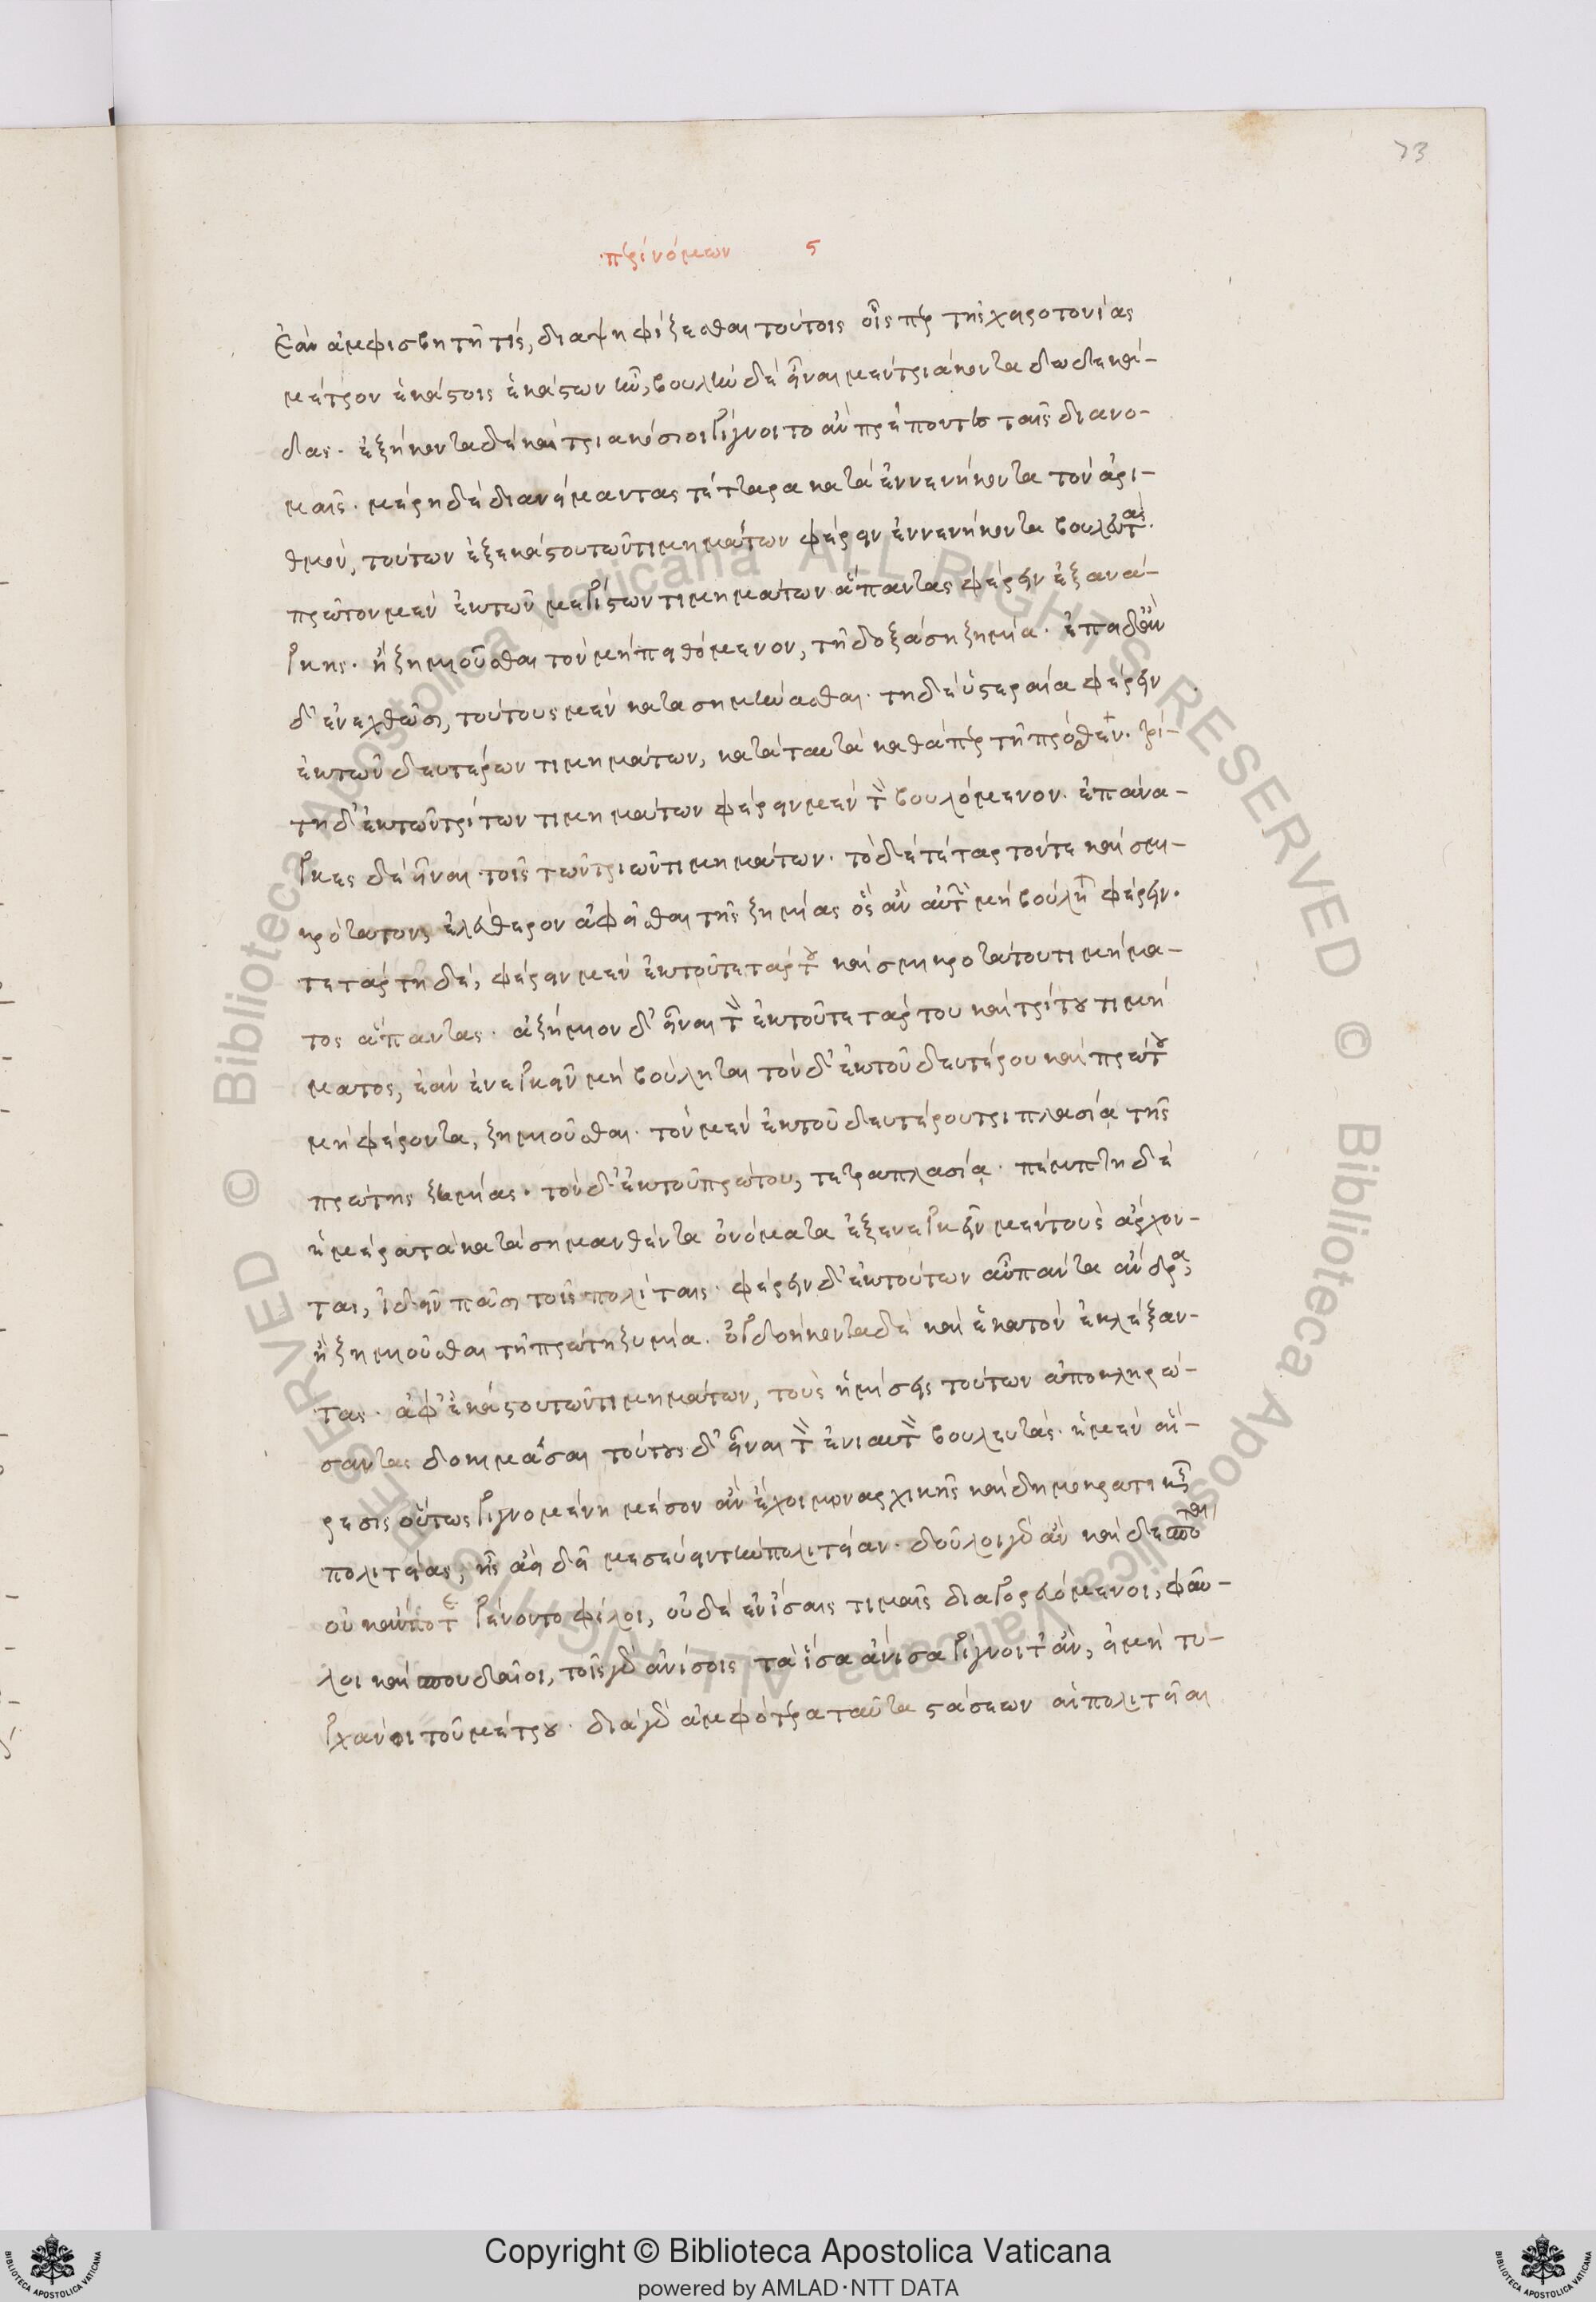 73
περὶ νόμων ϛ
Ἐὰν ἀμφισβητῆ τίς, διαψηφίζεσθαι τούτοις οἷς περ τῆς χειροτονίας
μέτρον ἑκάστοις ἑκάστων ἦν, βουλὴν δὲ εἶναι μὲν τριάκοντα δωδεκά-
δας. ἑξήκοντα δὲ καὶ τριακόσιοι γίγνοιτο ἂν πρέποντες ταῖς διανο-
μαῖς. μέρη δὲ διανείμαντας τέτταρα κατὰ ἐννενήκοντα τὸν ἀρι-
θμὸν, τούτων ἐξ ἑκάστου τῶν τιμημάτων φέρειν ἐννενήκοντα βουλευτάς.
πρῶτον μὲν ἐκ τῶν μεγίστων τιμημάτων ἅπαντας φέρειν ἐξ ἀνά-
γκης. ἢ ζημιοῦσθαι τὸν μὴ πειθόμενον, τῆ δοξάση ζημία. ἐπειδὰν
δ' ἐνεχθῶσι, τούτους μὲν κατασημήνασθαι. τῆ δὲ ὑστεραία φέρειν
ἐκ τῶν δευτέρων τιμημάτων, κατὰ ταυτὰ καθάπερ τῆ πρόσθεν. τρί-
τη δ' ἐκ τῶν τρίτων τιμημάτων φέρειν μὲν τὸν βουλόμενον. ἐπάνα-
γκες δὲ εἶναι τοῖς τῶν τριῶν τιμημάτων. τὸ δὲ τέταρτόν τε καὶ σμι-
κρότατον, ἐλεύθερον ἀφεῖσθαι τῆς ζημίας ὃς ἂν αὐτῶν μὴ βούληται φέρειν.
τετάρτη δὲ, φέρειν μὲν ἐκ τοῦ τετάρτου καὶ σμικροτάτου τιμήμα-
τος ἅπαντας. ἀζήμιον δ' εἶναι τὸν ἐκ τοῦ τετάρτου καὶ τρίτου τιμή
ματος, ἐὰν ἐνεγκεῖν μὴ βούληται τὸν δ' ἐκ τοῦ δευτέρου καὶ πρώτου
μὴ φέροντα, ζημιοῦσθαι. τὸν μὲν ἐκ τοῦ δευτέρου τριπλασίᾳ τῆς
πρώτης ζημίας. τὸν δ' ἐκ τοῦ πρώτου, τετραπλασίᾳ. πέμπτη δὲ
ἡμέρα τὰ κατασημανθέντα ὀνόματα ἐξενεγκεῖν μὲν τοὺς ἄρχον-
τας, ἰδεῖν πᾶσι τοῖς πολίταις. φέρειν δ' ἐκ τούτων αὖ πάντα ἄνδρα,
ἢ ζημιοῦσθαι τῆ πρώτη ζημία. ὀγδοήκοντα δὲ καὶ ἑκατὸν ἐκλέξαν-
τας. ἀφ' ἑκάστου τῶν τιμημάτων, τοὺς ἡμίσεις τούτων ἀποκληρώ-
σαντας δοκιμάσαι τούτους δ' εἶναι τὸν ἐνιαυτὸν βουλευτάς. ἡ μὲν αἵ-
ρεσις οὕτως γιγνομένη μέσον ἂν ἔχοι μοναρχικῆς καὶ δημοκρατικῆς
πολιτείας, ἧς ἀεὶ δεῖ μεσεύειν τὴν πολιτείαν. δοῦλοι γὰρ ἂν καὶ δεσπόται
οὐκ ἄν ποτε γένοιντο φίλοι, οὐδὲ ἐν ἴσαις τιμαῖς διαγορευόμενοι, φαῦ-
λοι καὶ σπουδαῖοι, τοῖς γὰρ ἀνίσοις τὰ ἴσα ἄνισα γίγνοιτ' ἂν, εἰ μὴ τυ-
γχάνοι τοῦ μέτρου. διὰ γὰρ ἀμφότερα ταῦτα στάσεων αἱ πολιτεῖαι
Copyright © Biblioteca Apostolica Vaticana
powered by AMLAD·NTT DATA
© Biblioteca Apostolica Vaticana ALL RIGHTS RESERVED © Biblioteca Apostolica Vaticana ALL RIGHTS RESERVED
BIBLIOTECA APOSTOLICA VATICANA
BIBLIOTECA APOSTOLICA VATICANA